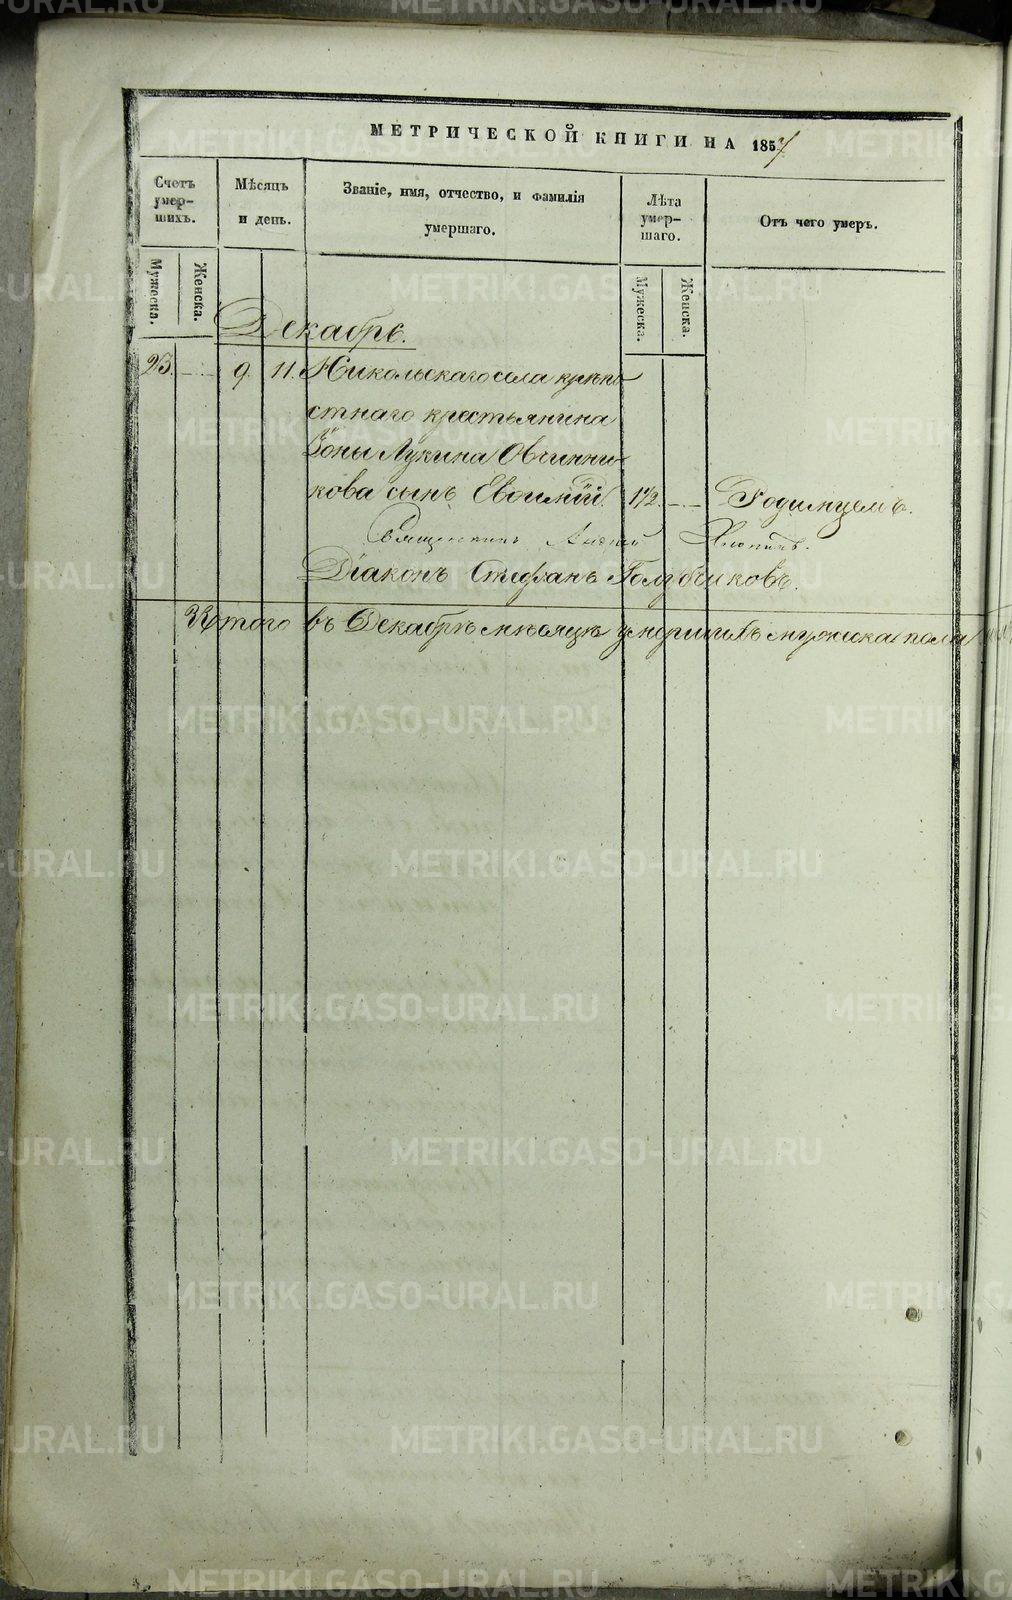 МЕТРИЧЕСКОЙ КНИГИ НА 1857
Счетъ умер-шихъ.
Мѣсяцъ и день.
Званіе, имя, отчество, и фамилія умершаго.
Лѣта умер-шаго.
Отъ чего умеръ.
Мужеска.
Женска.
Мужеска.
Женска.
Декабрь.
23. — 9. 11. Никольскаго села крѣпо
стнаго крестьянина
Зоны Лукина Овчинни-
кова сынъ Евѳимій. 1/2. — Родимцемъ.
Священникъ
Діаконъ Стефанъ Голубчиковъ.
Итого въ Декабрѣ мѣсяцѣ умершихъ мужеска пола
METRIKI.GASO-URAL.RU